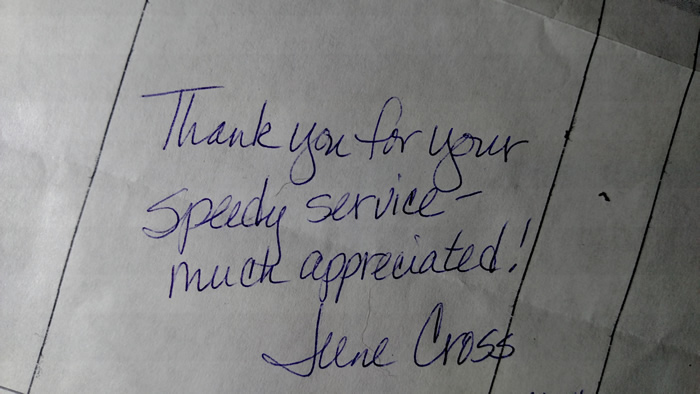 Thank you for your
speedy service -
much appreciated!
June Cross